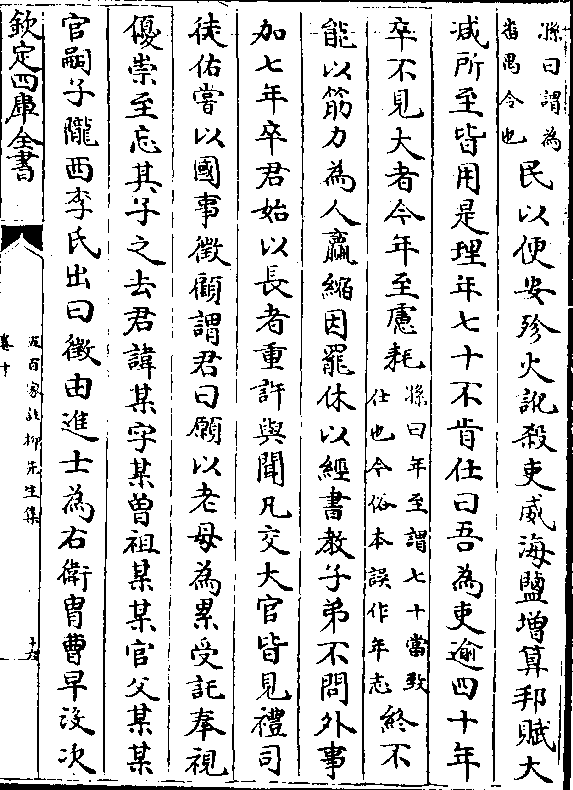 孫曰謂為
畨禺令也
民以便安殄火訛殺吏威海鹽增算邦賦大
减所至皆用是理年七十不肯仕曰吾為吏逾四十年
卒不見大者今年至慮耗
孫曰年至謂七十當致
仕也今俗本誤作年志
終不
能以筋力為人羸縮因罷休以經書教子弟不問外事
加七年卒君始以長者重許與聞凡交大官皆見禮司
徒佑嘗以國事徵顧謂君曰願以老母為累受託奉視
優崇至忘其子之去君諱某字某曾祖某某官父某某
官嗣子隴西李氏出曰徵由進士為右衛胄曹早没次
欽定四庫全書
卷十
五百家註柳先生集
十九